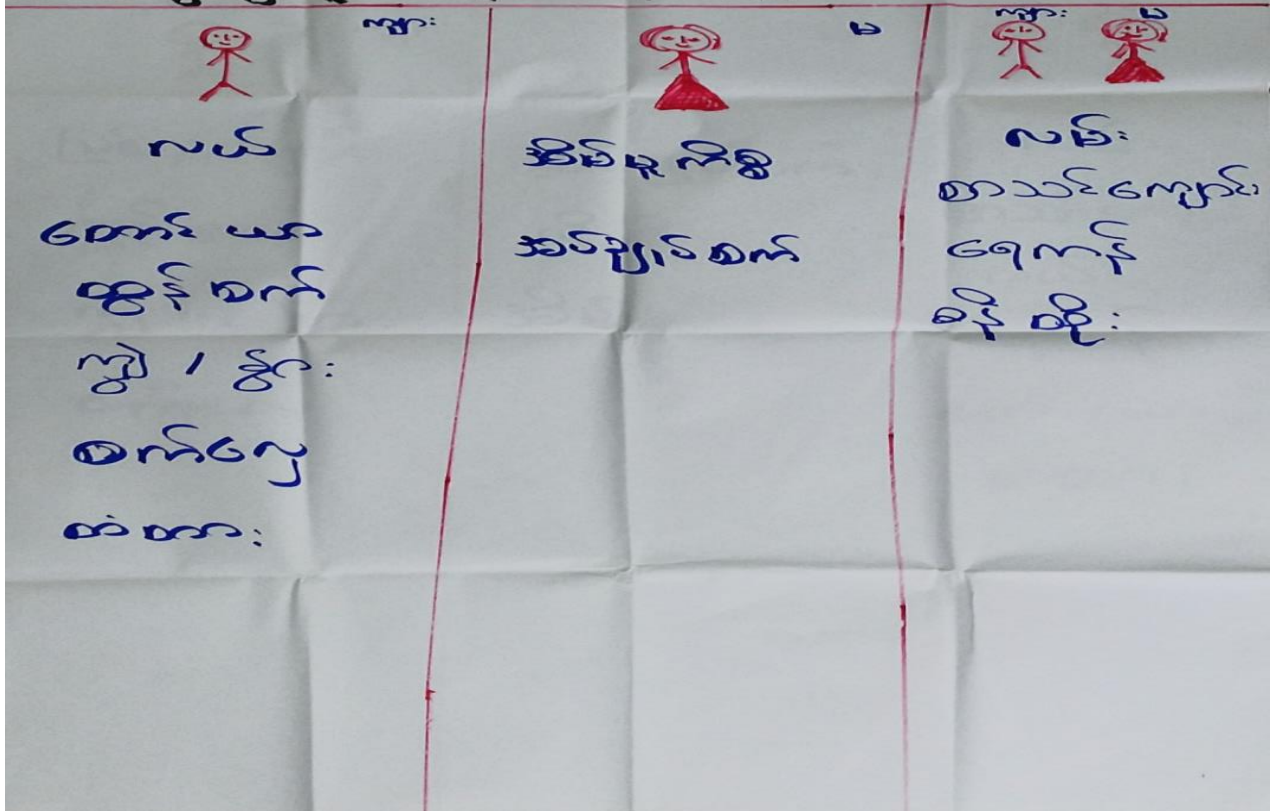 ကျား
လယ်
တောင် ယာ
ထွန် စက်
ကျွဲ / နွား
စက်လှေ
တံတား
မ
အိမ်မှု ကိစ္စ
အပ်ချုပ်စက်
ကျား မ
လမ်း
စာသင်ကျောင်း
ရေကန်